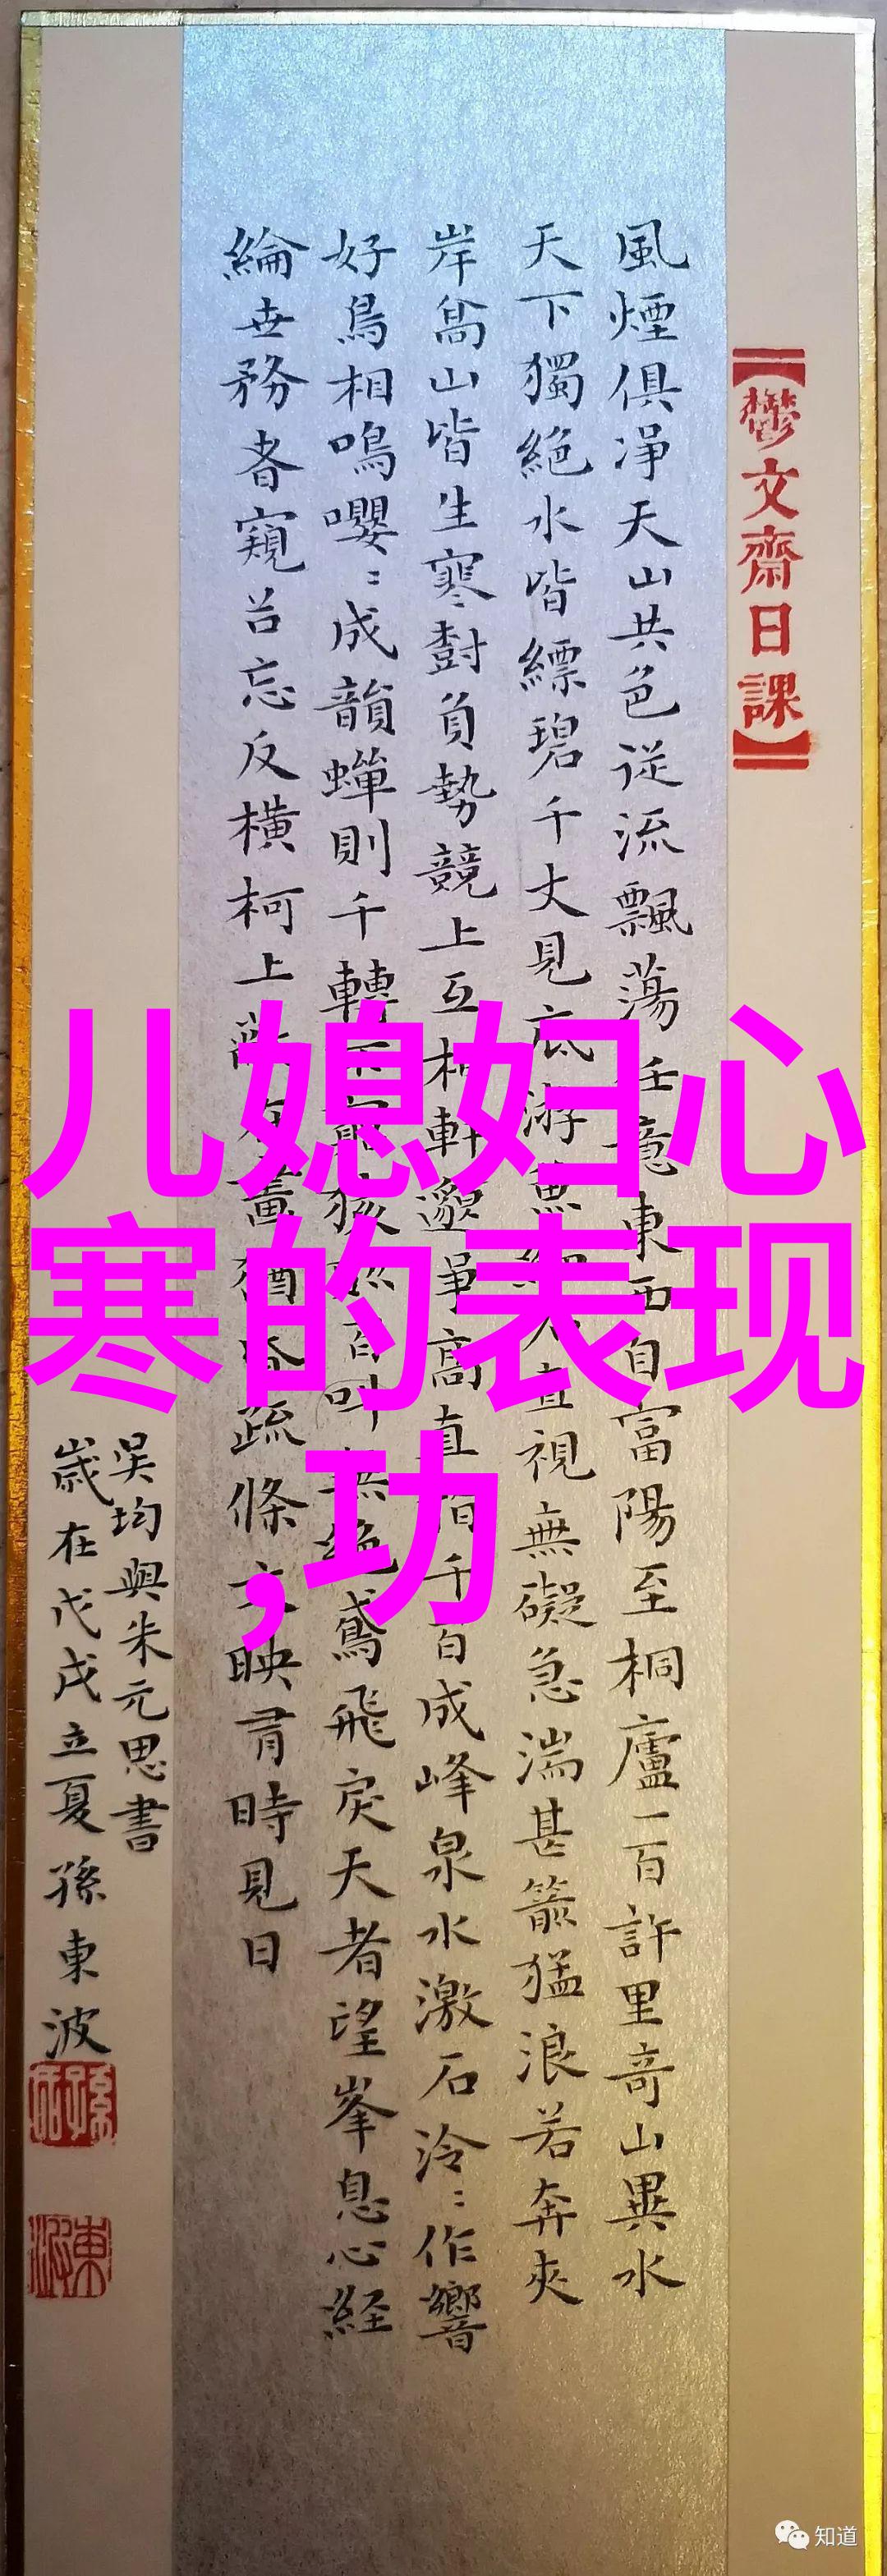 【鬱文齋日課】
風煙俱淨天山共色從流飄蕩任意東西自富陽至桐廬一百許里奇山異水
天下獨絕水皆縹碧千丈見底游魚細石直視無礙急湍甚箭猛浪若奔夾
岸高山皆生寒樹負勢競上互相軒邈爭高直指千百成峰泉水激石泠：作響
好鳥相鳴嚶：成韻蟬則千轉不窮猿則百叫無絕鳶飛戾天者望峯息心経
綸世務者窺谷忘反橫柯上蔽在晝猶昏疏條交映有時見日
吳均與朱元思書
歲在戊戌立夏孫東波
儿媳妇心
寒的表现
,功
知道